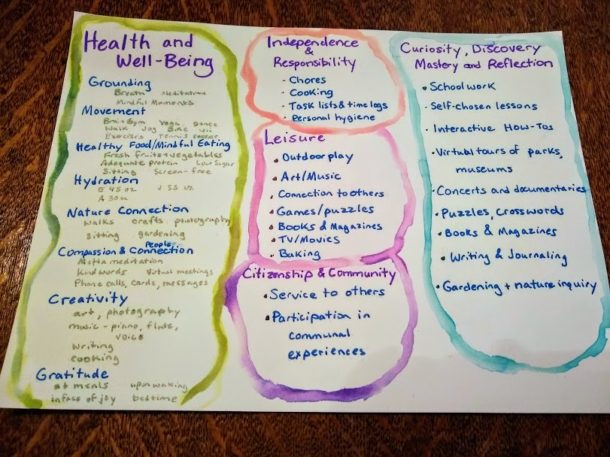 Health and
Well-Being
Grounding
Breath meditation
Mindful Moments
Movement
Brain Gym Yoga dance
Walk Jog Bike
Exercise Tennis Soccer
Healthy Food/Mindful Eating
Fresh fruits + vegetables
Adequate protein Low Sugar
Sitting Screen-free
Hydration
E 45 oz
A 30 oz
Nature Connection
walks crafts photography
sitting gardening
Compassion & Connection
People:
Metta meditation
Kind words virtual meetings
Phone calls, cards, messages
Creativity
art, photography
music - piano, flute,
voice
writing
cooking
Gratitude
at meals upon waking
infuse of joy bedtime
Independence
&
Responsibility
· Chores
· Cooking
· Task lists & time logs
· Personal hygiene
Leisure
• Outdoor play
• Art/Music
• Connection to others
• Games/puzzles
• Books & Magazines
• TV/Movies
• Baking
Citizenship & Community
• Service to others
• Participation in
communal
experiences
Curiosity, Discovery
Mastery and Reflection
• School work
· Self-chosen lessons
• Interactive How-Tos
• Virtual tours of parks,
museums
• Concerts and documentaries
• Puzzles, Crosswords
• Books & Magazines
• Writing & Journaling
• Gardening + nature inquiry